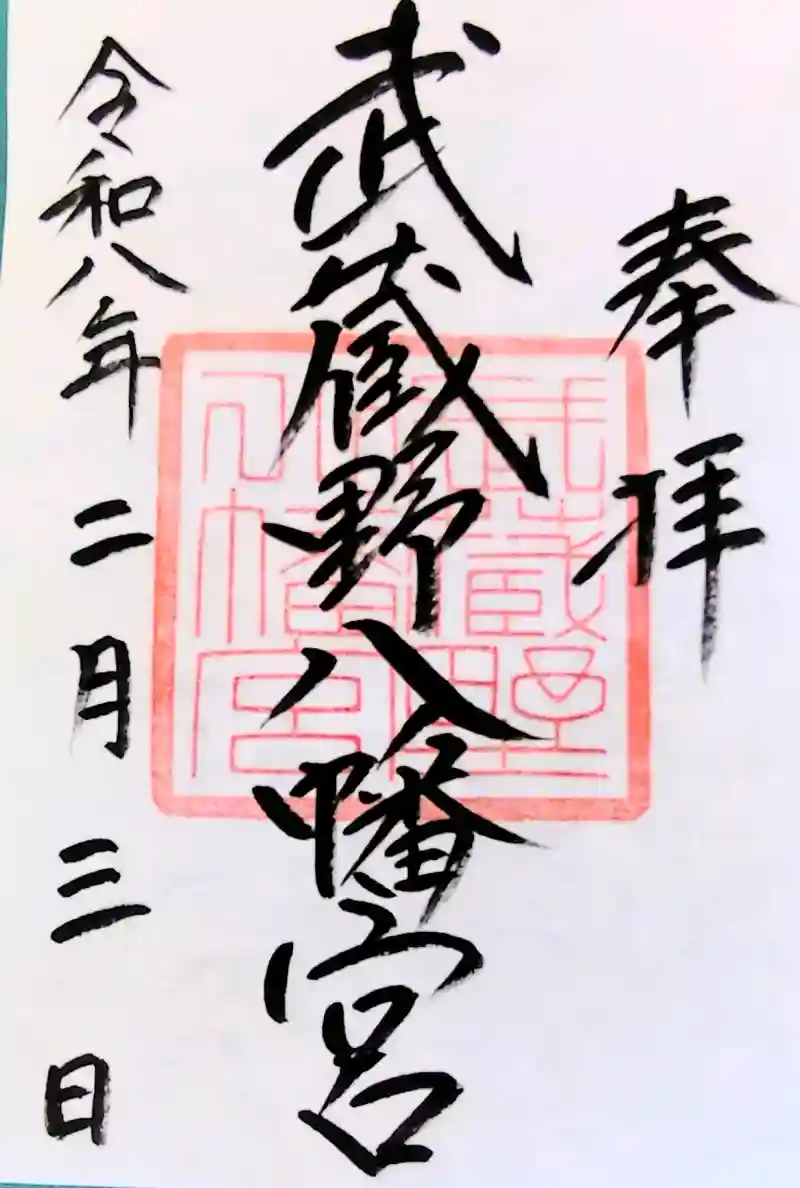 奉拝
武蔵野八幡宮
武蔵野
八幡宮
令和八年二月三日